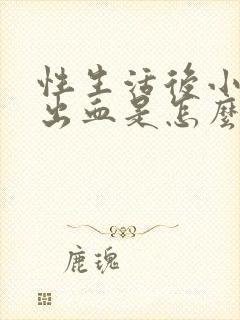 性生活後小
出血是怎麼
鹿瑰